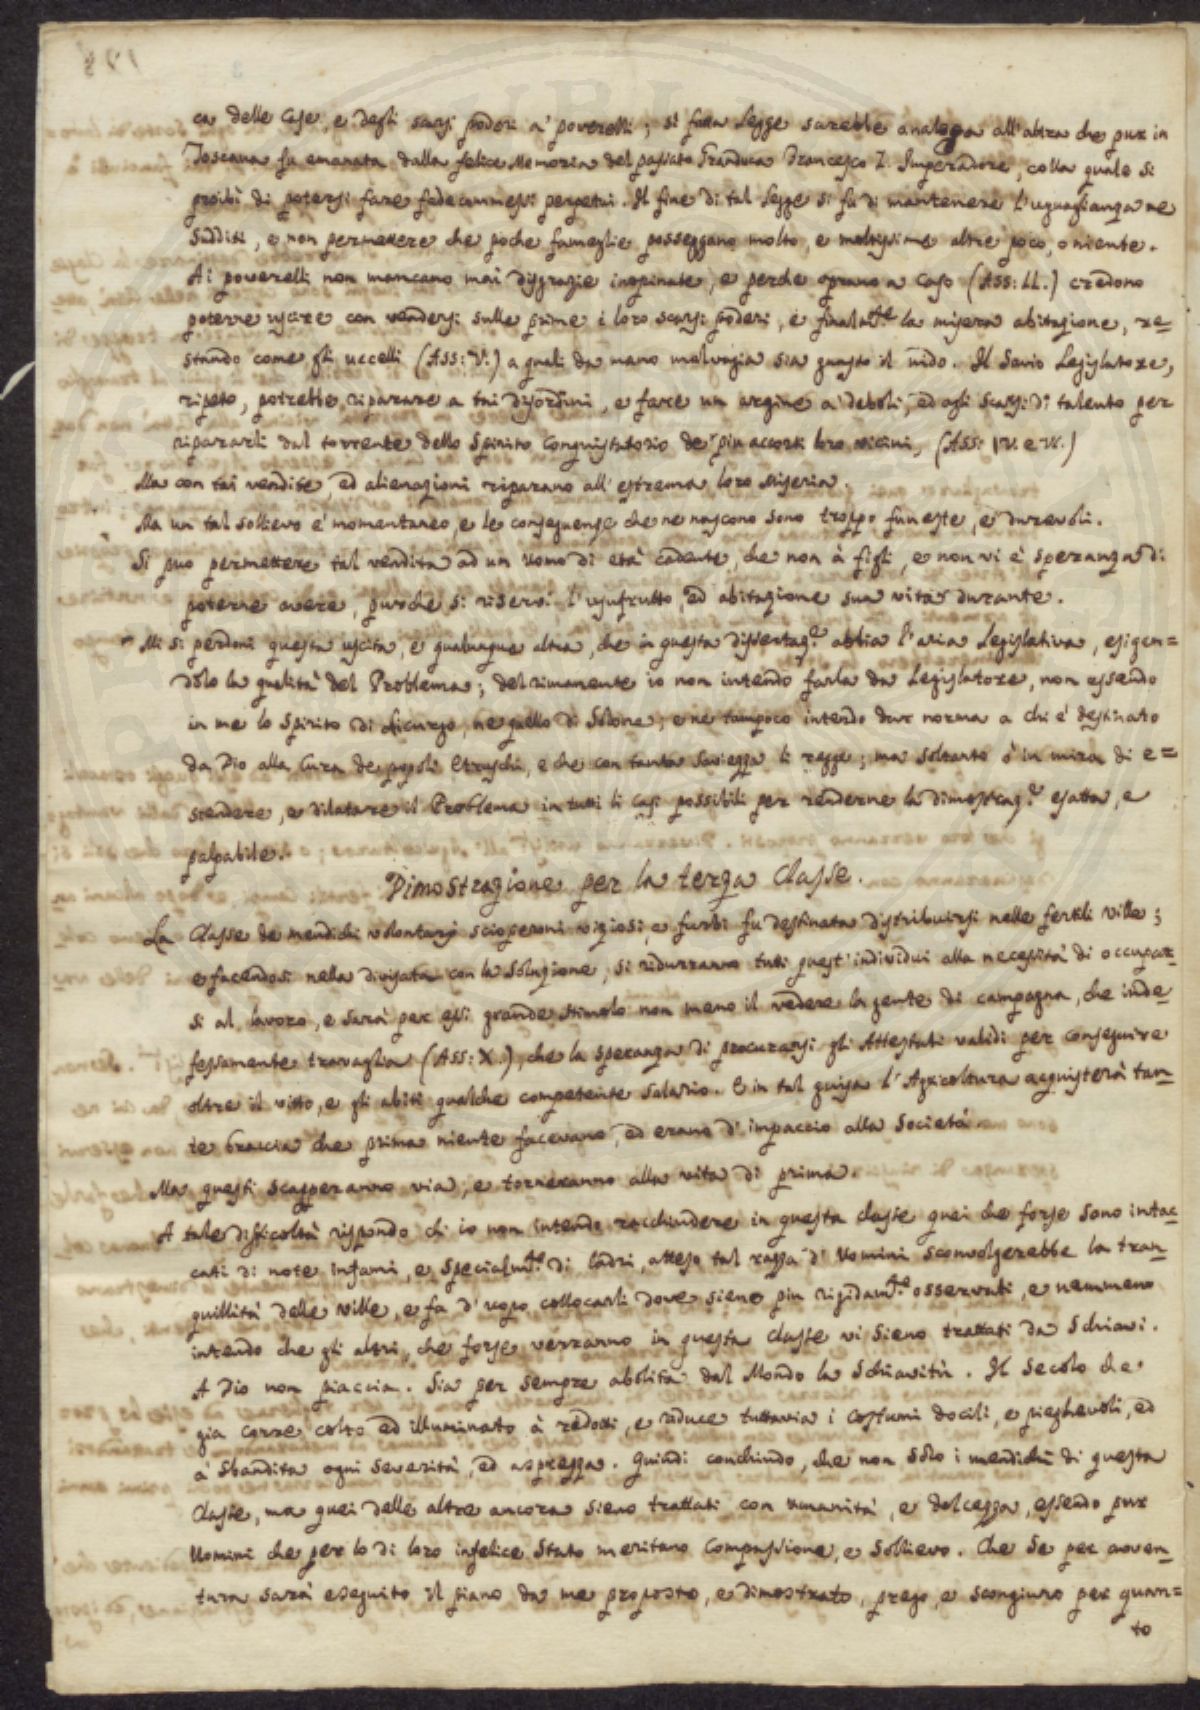 ca delle Case, e degli scarsi poderi a' poverelli; sì fatta Legge sarebbe analoga all'altra che pur in
Toscana fu emanata dalla felice Memoria del passato Granduca Francesco I. Imperadore, colla quale si
proibì di potersi fare fedecommessi perpetui. Il fine di tal Legge si fu di mantenere l'uguaglianza ne
Sudditi, e non permettere che poche fameglie posseggano molto, e moltissime altre poco, o niente.
Ai poverelli non mancano mai disgrazie inopinate, e perche oprano a Caso (Ass: LL.) credono
poterne uscire con vendersi sulle prime i loro scarsi poderi, e finalm.te la misera abitazione, re=
stando come gli uccelli (Ass: V.) a quali da mano malvagia sia guasto il nido. Il Savio Legislatore,
ripeto, potrebbe riparare a tai disordini, e fare un argine a' deboli, ed agli scarsi di talento per
ripararli dal torrente dello Spirito Conquistatorio de' piu accorti loro vicini, (Ass: IV. e VI.)
Ma con tai vendite, ed alienazioni riparano all'estrema loro Miseria.
Ma un tal sollievo e' momentaneo, e le conseguenze che ne nascono sono troppo funeste, e durevoli.
Si puo permettere tal vendita ad un Uomo di età cadente, che non à figli, e non vi è speranza di
poterne avere, purche si riservi l'usufrutto, ed abitazione sua vita durante.
Mi si perdoni questa uscita, e qualunque altra, che in questa dissertaz.e abbia l'aria Legislativa, esigen=
dolo la qualità del Problema; del rimanente io non intendo farla da Legislatore, non essendo
in me lo Spirito di Licurgo, ne quello di Solone; e ne tampoco intendo dar norma a chi e' destinato
da Dio alla Cura de popoli Etruschi, e che con tanta Saviezza li regge; ma soltanto ò in mira di e=
stendere, e dilatare il Problema in tutti li casi possibili per renderne la dimostraz.e esatta, e
palpabile.
Dimostrazione per la terza Classe.
La Classe de mendichi volontarj scioperoni viziosi, e furbi fu destinata distribuirsi nelle fertili ville;
e facendosi nella divisata con la Soluzione, si ridurranno tutti quest'individui alla necessità di occupar=
si al lavoro, e sarà per essi grande stimolo non meno il vedere la gente di campagna, che inde=
fessamente travaglia (Ass: X.), che la speranza di procurarsi gli Attestati validi per conseguire
oltre il vitto, e gli abiti qualche competente salario. E in tal guisa l'Agricoltura acquisterà tan=
te braccia che prima niente facevano, ed erano d'impaccio alla Società
Ma questi scapperanno via, e torneranno alla vita di prima.
A tale difficoltà rispondo ch'io non intendo racchiudere in questa classe quei che forse sono intac=
cati di note Infami, e specialm.te di ladri, atteso tal razza d'Uomini sconvolgerebbe la tran=
quillità delle ville, e fa d'uopo collocarli dove sieno piu rigidam.te osservati, e nemmeno
intendo che gli altri, che forse verranno in questa Classe vi sieno trattati da Schiavi.
A Dio non piaccia. Sia per sempre abolita dal Mondo la Schiavitù. Il secolo che
gia corre colto ed illuminato à redotti, e riduce tuttavia i Costumi docili, e pieghevoli, ed
à sbandita ogni severità, ed asprezza. Quindi conchiudo, che non solo i mendichi di questa
Classe, ma quei delle altre ancora sieno trattati con umanità, e dolcezza, essendo pur
Uomini che per lo di loro infelice Stato meritano Compassione, e Sollievo. Che se per avven=
tura sarà eseguito il piano da me proposto, e dimostrato, prego, e scongiuro per quan=
to